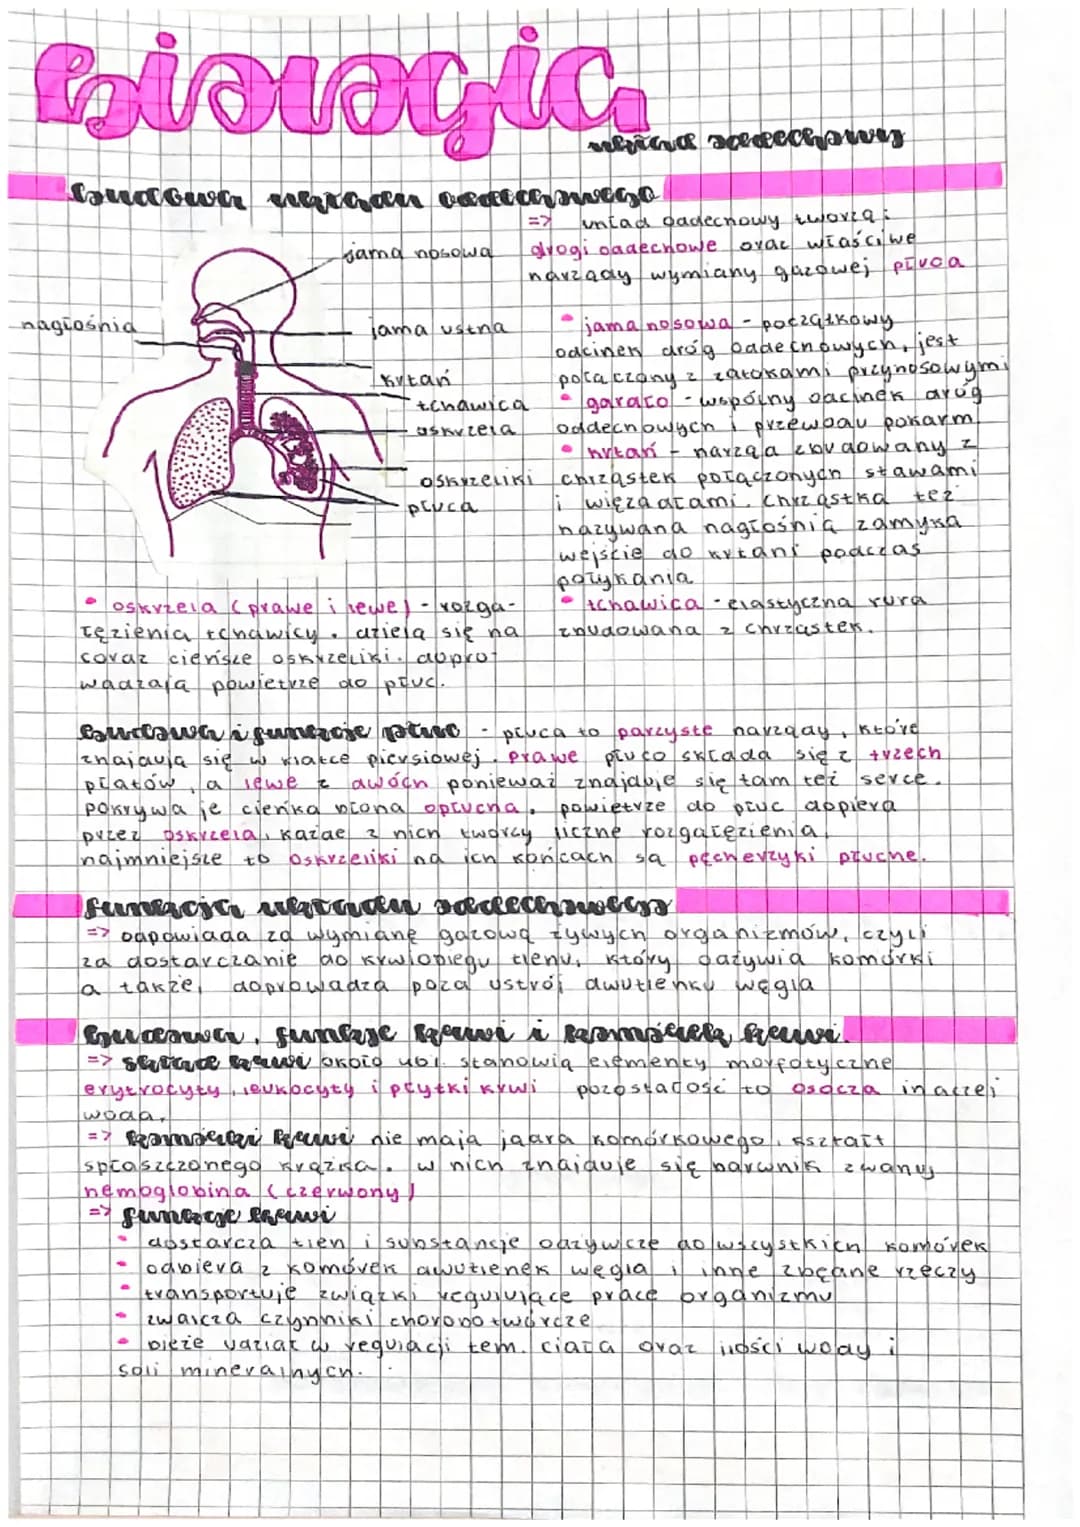 Biologia
układ oddechowy
Budowa układu oddechowego
=> układ oddechowy tworzą:
drogi oddechowe oraz właściwe
narządy wymiany gazowej płuca
jama nosowa
nagłośnia
jama ustna
krtań
tchawica
oskrzela
oskrzeliki
płuca
• jama nosowa - początkowy
odcinek dróg oddechowych, jest
połączony z zatokami przynosowymi
• gardło - wspólny odcinek dróg
oddechowych i przewodu pokarm.
• krtań - narząd zbudowany z
chrząstek połączonych stawami
i więzadłami. chrząstka też
nazywana nagłośnią zamyka
wejście do krtani podczas
połykania
• tchawica - elastyczna rura
zbudowana z chrząstek.
• oskrzela (prawe i lewe) - rozga-
łęzienia tchawicy. dzielą się na
coraz cieńsze oskrzeliki. dopro-
wadzają powietrze do płuc.
Budowa i funkcje płuc - płuca to parzyste narządy, które
znajdują się w klatce piersiowej. Prawe płuco składa się z trzech
płatów, a lewe z dwóch ponieważ znajduje się tam też serce.
Pokrywa je cienka błona opłucna. powietrze do płuc dopiera
przez oskrzela, każde z nich tworzy liczne rozgałęzienia,
najmniejsze to oskrzeliki na ich końcach są pęcherzyki płucne.
funkcja układu oddechowego
=> odpowiada za wymianę gazową żywych organizmów, czyli
za dostarczanie do krwiobiegu tlenu, który odżywia komórki
a także, doprowadza poza ustrój dwutlenku węgla
Budowa, funkcje krwi i komórek krwi.
=> skład krwi około ubi. stanowią elementy morfotyczne
erytrocyty, leukocyty i płytki krwi pozostałość to osocza inaczej
woda.
=> komórki krwi nie mają jądra komórkowego, kształt
spłaszczonego krążka. w nich znajduje się barwnik zwany
hemoglobina (czerwony)
=> funkcje krwi
• dostarcza tlen i substancje odżywcze do wszystkich komórek
• odbiera z komórek dwutlenek węgla i inne zbędne rzeczy
• transportuje związki regulujące pracę organizmu
• zwalcza czynniki chorobotwórcze
• bieże udział w regulacji tem. ciała oraz ilości wody i
soli mineralnych.